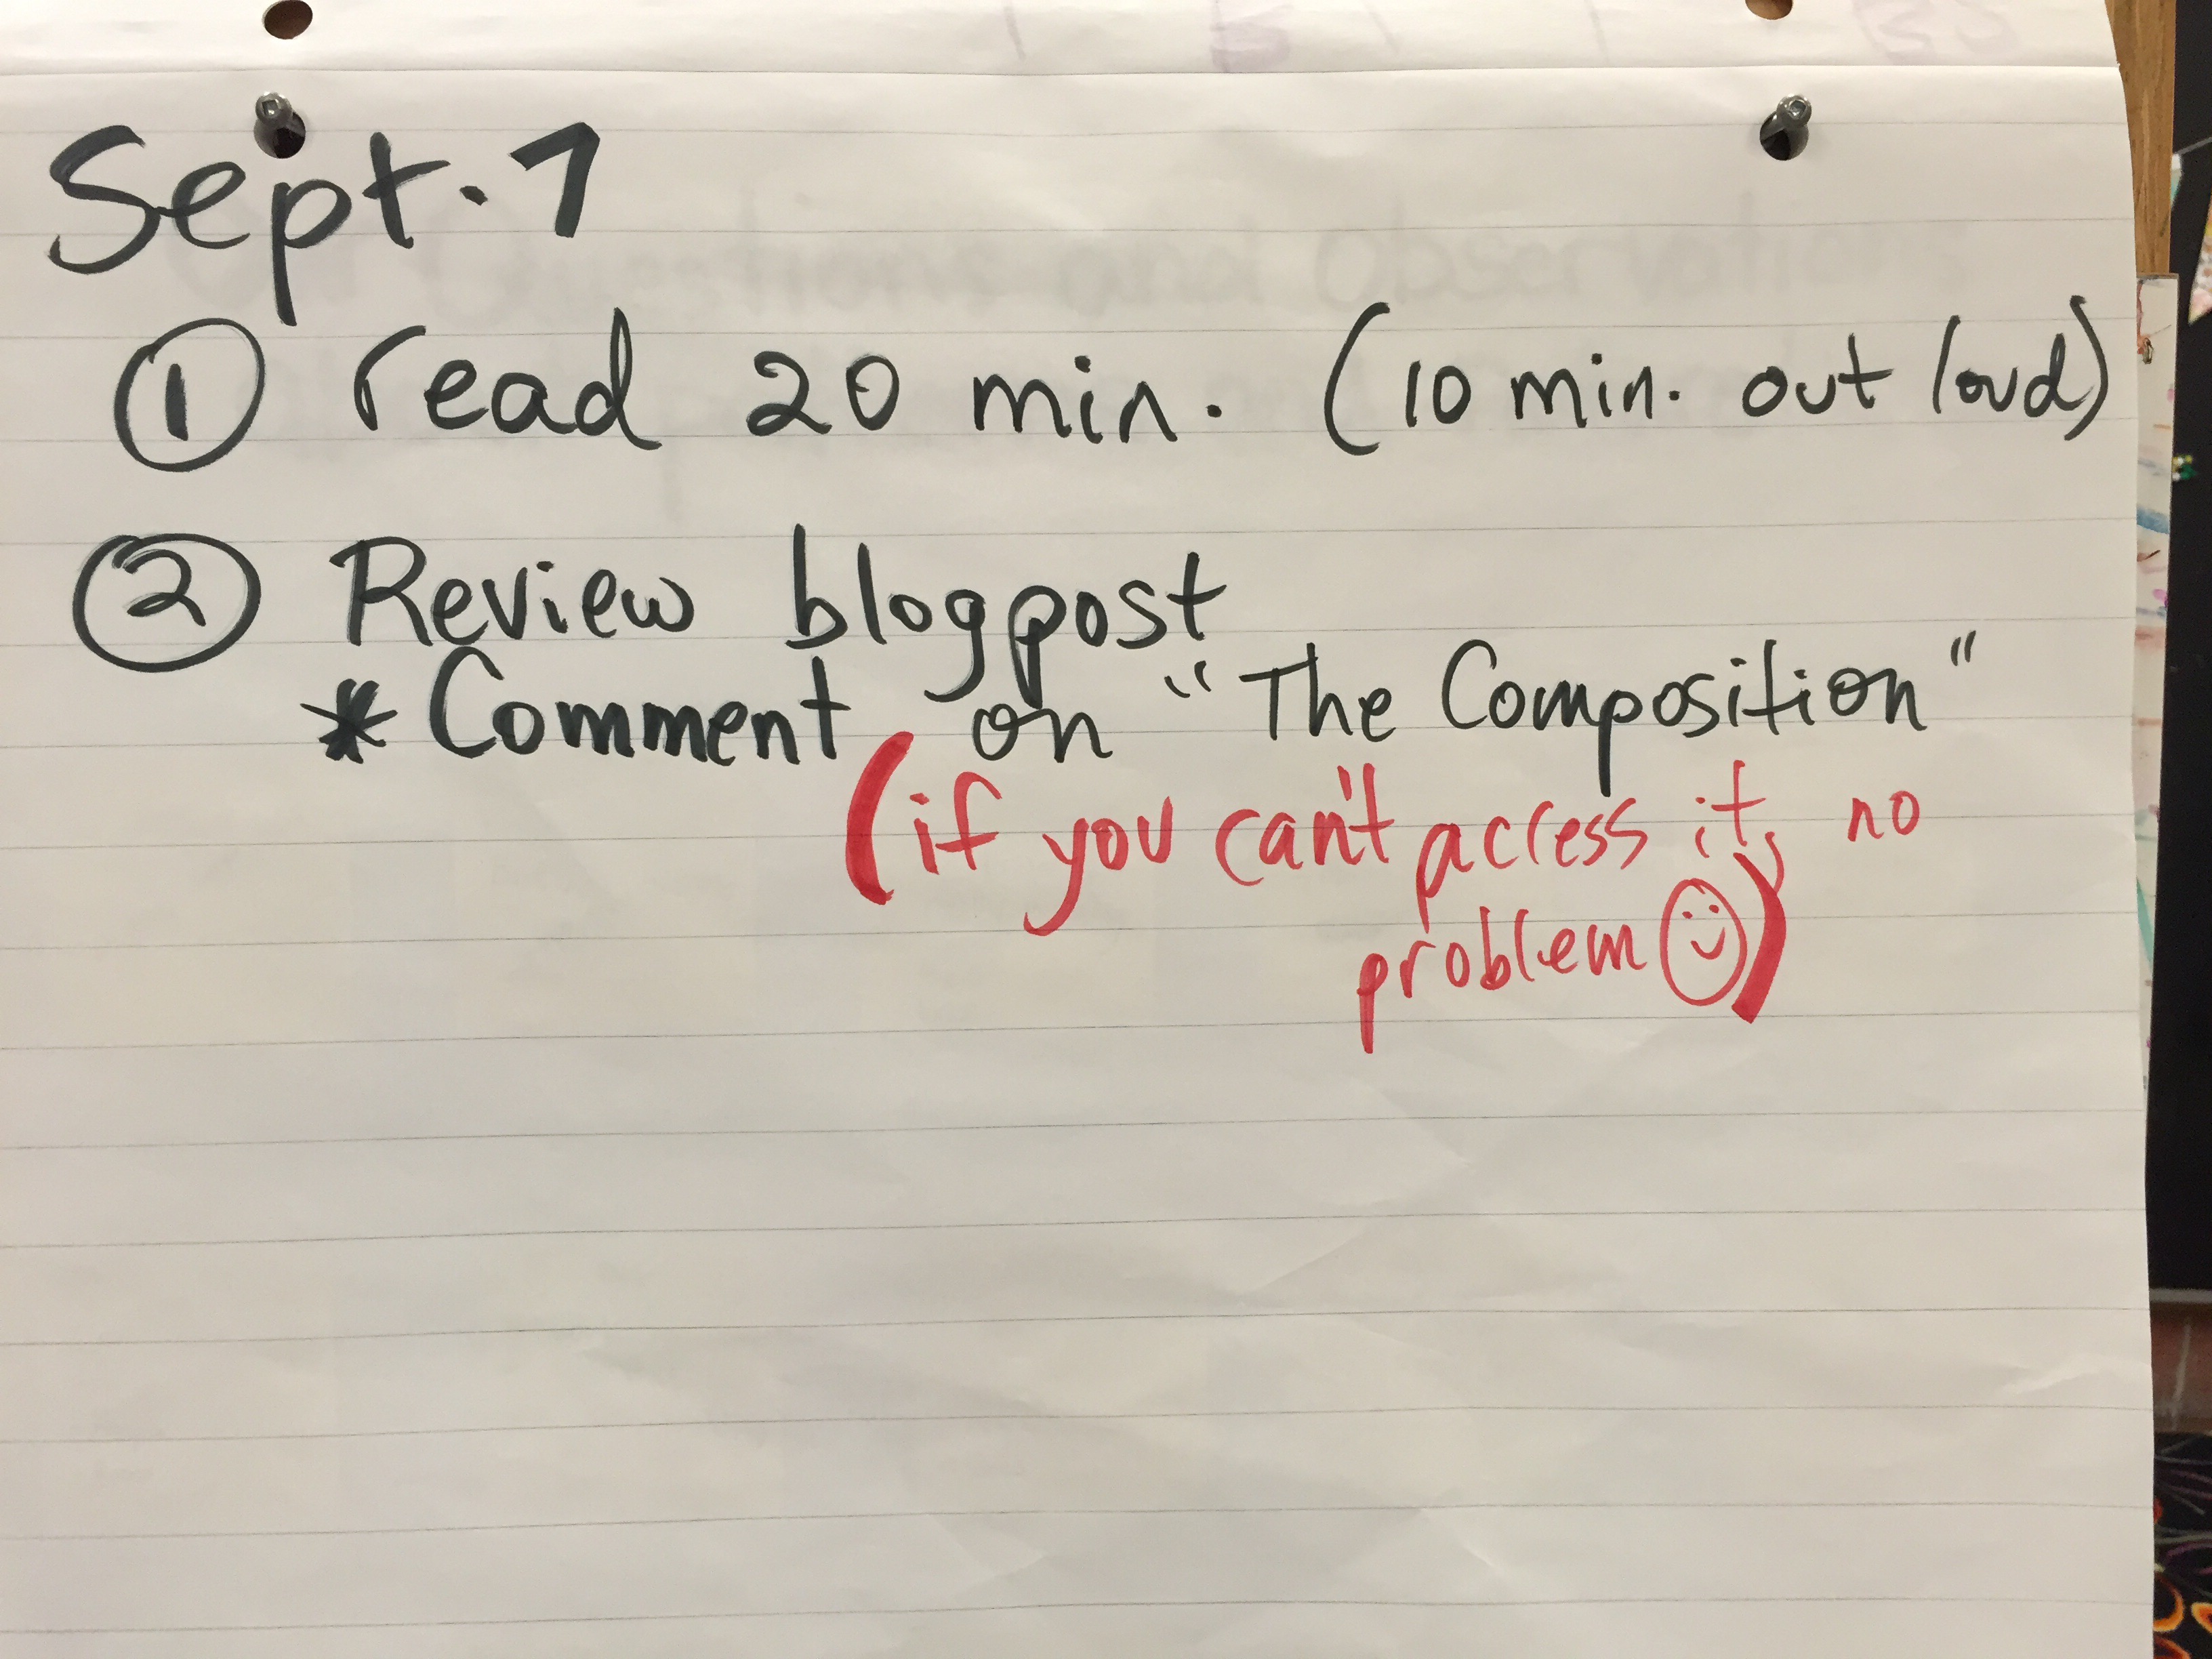 Sept. 7
① read 20 min. (10 min. out loud)
② Review blogpost
* Comment on "The Composition"
(if you can't access it, no
problem ☺)